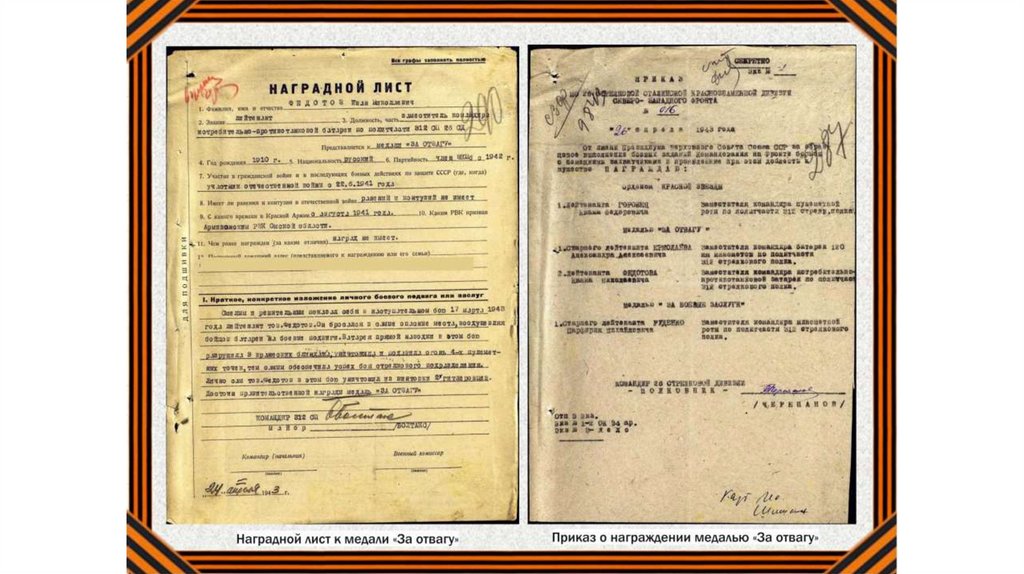 Все графы заполнять полностью
НАГРАДНОЙ ЛИСТ
1. Фамилия, имя и отчество ФЕДОТОВ Иван Николаевич
2. Звание лейтенант 3. Должность, часть заместитель командира
истребительно-противотанковой батареи по политчасти 312 СП 26 СД
Представляется к медали "ЗА ОТВАГУ"
4. Год рождения 1910 г. 5. Национальность русский 6. Партийность член ВКП(б) с 1942 г.
7. Участие в гражданской войне и в последующих боевых действиях по защите СССР (где, когда)
участник отечественной войны с 22.6.1941 года
8. Имеет ли ранения и контузии в отечественной войне ранений и контузий не имеет
9. С какого времени в Красной Армии с августа 1941 года. 10. Каким РВК призван
Армизонским РВК Омской области.
11. Чем ранее награжден (за какие отличия) наград не имеет.
для подшивки
I. Краткое, конкретное изложение личного боевого подвига или заслуг
Смелым и решительным показал себя в наступательном бою 17 марта 1943
года лейтенант тов. Федотов. Он бросался в самые опасные места, воодушевляя
бойцов батареи на боевые подвиги. Батарея прямой наводки в этом бою
разрушила 3 вражеских блиндажа, уничтожила и подавила огонь 4-х пулемет-
ных точек, тем самым обеспечила успех боя стрелкового подразделения.
Лично сам тов. Федотов в этом бою уничтожил из винтовки 2 гитлеровцев.
Достоин правительственной награды медаль "ЗА ОТВАГУ"
КОМАНДИР 312 СП
майор /БОЛТАКС/
Командир (начальник) Военный комиссар
24 апреля 1943 г.
200
СЕКРЕТНО
Экз №
ПРИКАЗ
26 СТРЕЛКОВОЙ СТАЛИНСКОЙ КРАСНОЗНАМЕННОЙ ДИВИЗИИ
СЕВЕРО-ЗАПАДНОГО ФРОНТА
№ 016
"26" апреля 1943 года
287
От имени Президиума Верховного Совета Союза ССР за образ-
цовое выполнение боевых заданий Командования на фронте борьбы
с немецкими захватчиками и проявленные при этом доблесть и
мужество НАГРАЖДАЮ:
Орденом КРАСНОЙ ЗВЕЗДЫ
1. Лейтенанта ГОРОШЕК Заместителя командира пулеметной
Ивана Федоровича роты по политчасти 312 стрелк. полка.
Медалью "ЗА ОТВАГУ"
1. Старшего лейтенанта ЕРМОЛАЕВА Заместителя Командира батареи 120
Александра Алексеевича мм минометов по политчасти
312 стрелкового полка.
2. Лейтенанта ФЕДОТОВА Заместителя командира истребительно-
Ивана Николаевича противотанковой батареи по политчасти
312 стрелкового полка.
Медалью "ЗА БОЕВЫЕ ЗАСЛУГИ"
1. Старшего лейтенанта РУДЕНКО Заместителя командира минометной
Порфирия Михайловича роты по политчасти 312 стрелкового
полка.
КОМАНДИР 26 СТРЕЛКОВОЙ ДИВИЗИИ
- ПОЛКОВНИК -
/ЧЕРЕПАНОВ/
Отп 3 экз.
Экз № 1-2 ОК 34 ар.
Экз № 3- дело
Наградной лист к медали «За отвагу»
Приказ о награждении медалью «За отвагу»